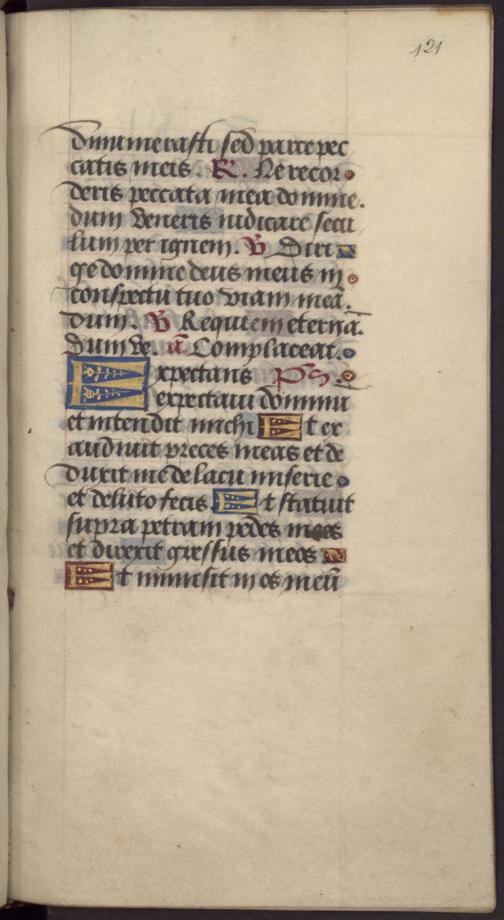 121
dinumerasti sed parce pec
catis meis. R. Ne recor
deris peccata mea domine.
dum veneris iudicare secu
lum per ignem. V Diri
ge domine deus meus in
conspectu tuo viam meā.
Dum. V Requiem eternā.
Dum ve. ā Complaceat.
Expectans PS.
expectaui dominū
et intendit michi Et ex
audiuit preces meas et e
duxit me de lacu miserie
et de luto fecis Et statuit
supra petram pedes meos
et direxit gressus meos
Et inmisit in os meū